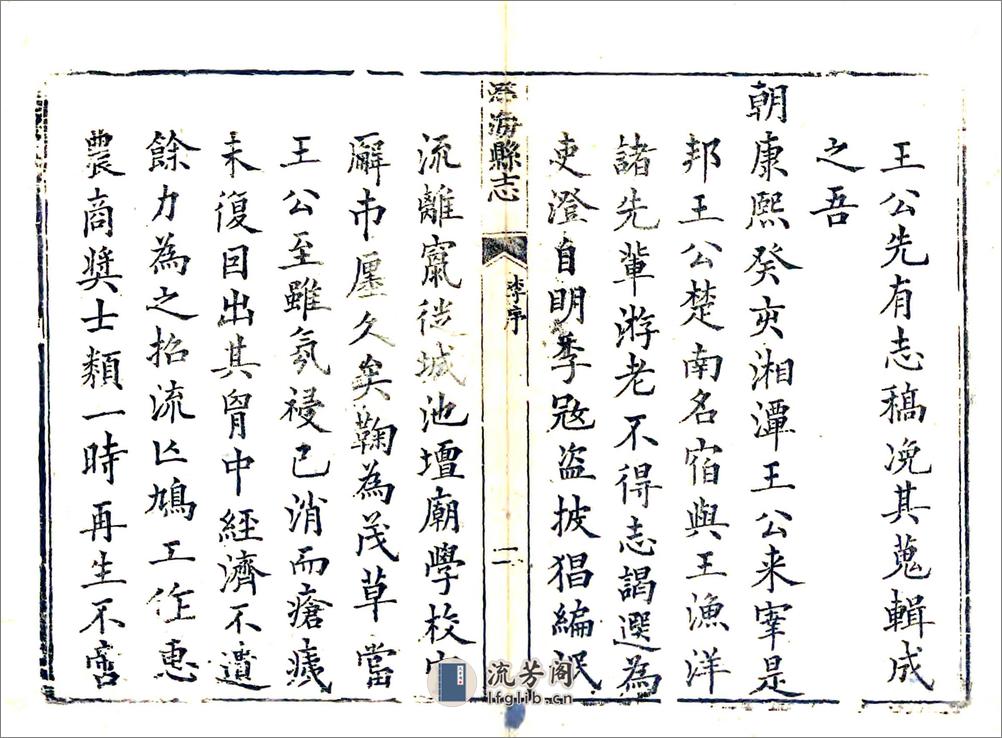 王公先有志稿况其蒐輯成
之吾
朝康熙癸亥湘潭王公来宰是
邦王公楚南名宿與王漁洋
諸先輩游老不得志謁選為
吏澄自明季冦盜披猖編氓
澄海縣志
李序
二
流離竄徙城池壇廟學校
廨市廛久矣鞠為茂草當
王公至雖氛祲已消而瘡痍
未復因出其胷中經濟不遺
餘力為之招流亡鳩工作惠
農商奨士類一時再生不啻
流芳阁
lfglib.cn